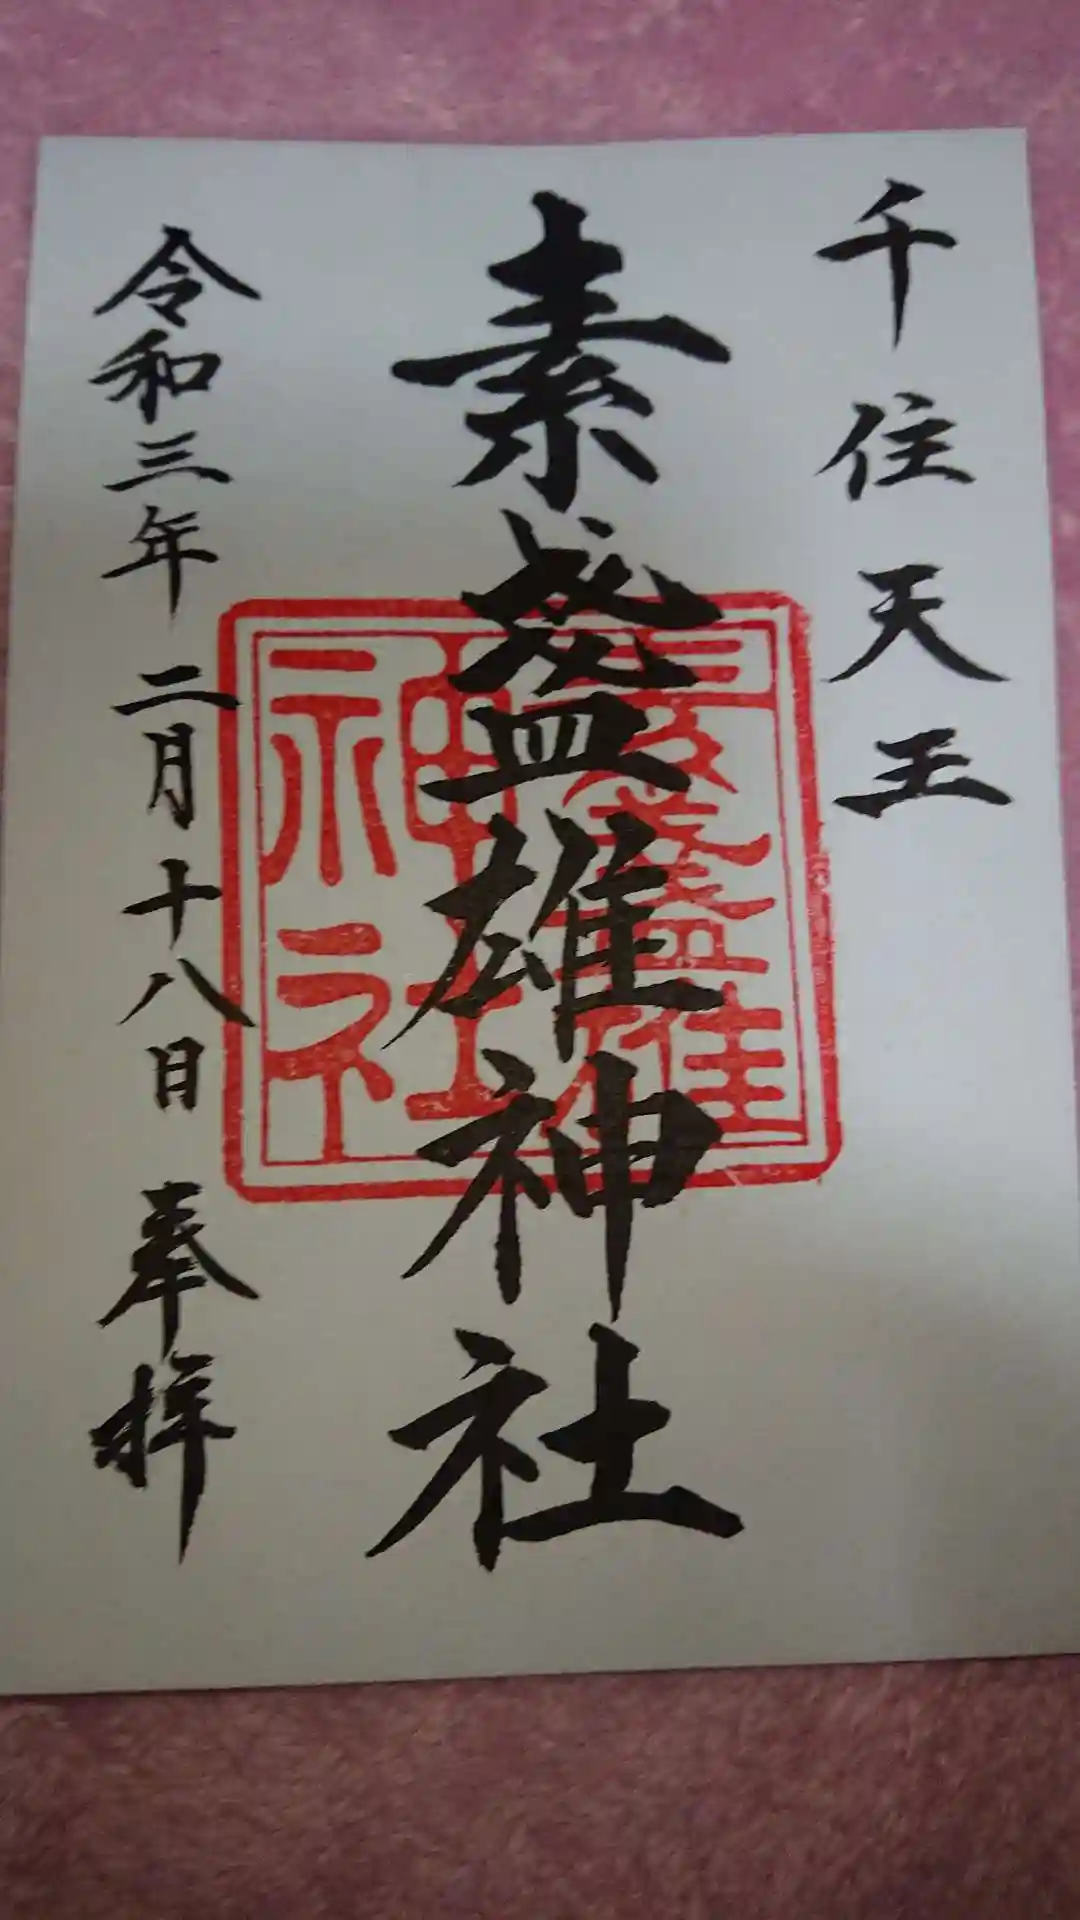 千住天王
素盞雄神社
令和三年 二月十八日 奉拝
素盞雄
神社